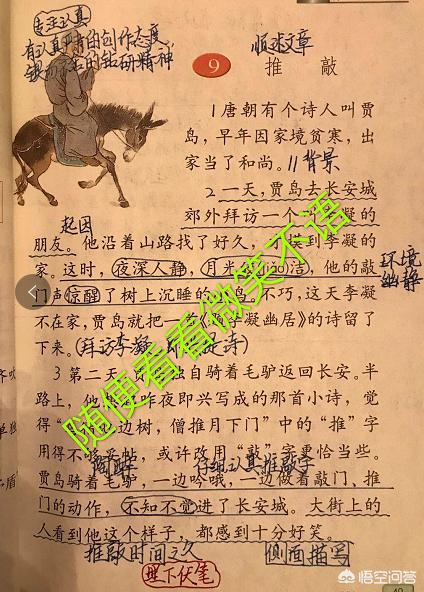 有认真严肃的创作态度,
的钻研精神
9 推 敲
1唐朝有个诗人叫贾
岛，早年因家境贫寒，出
家当了和尚。//背景
2一天，贾岛去长安城
郊外拜访一个 李凝的
起因
朋友。他沿着山路找了好久， 摸到李凝的
家。这时，夜深人静，月光 洁，他的敲
环境
幽静
门声惊醒了树上沉睡的 不巧，这天李凝
不在家，贾岛就把一 《 李凝幽居》的诗留了
下来。(拜访李凝 诗)
3第二天， 独自骑着毛驴返回长安。半
路上，他 昨夜即兴写成的那首小诗，觉
得“ 边树，僧推月下门”中的“推”字
用得不够 帖，或许改用“敲”字更恰当些。
陶醉 仔细认真推敲字
贾岛骑着毛驴，一边吟哦，一边做着敲门、推
门的动作，不知不觉进了长安城。大街上的
人看到他这个样子，都感到十分好笑。
推敲时间之久 侧面描写
埋下伏笔
随便看看微笑不语
悟空问答